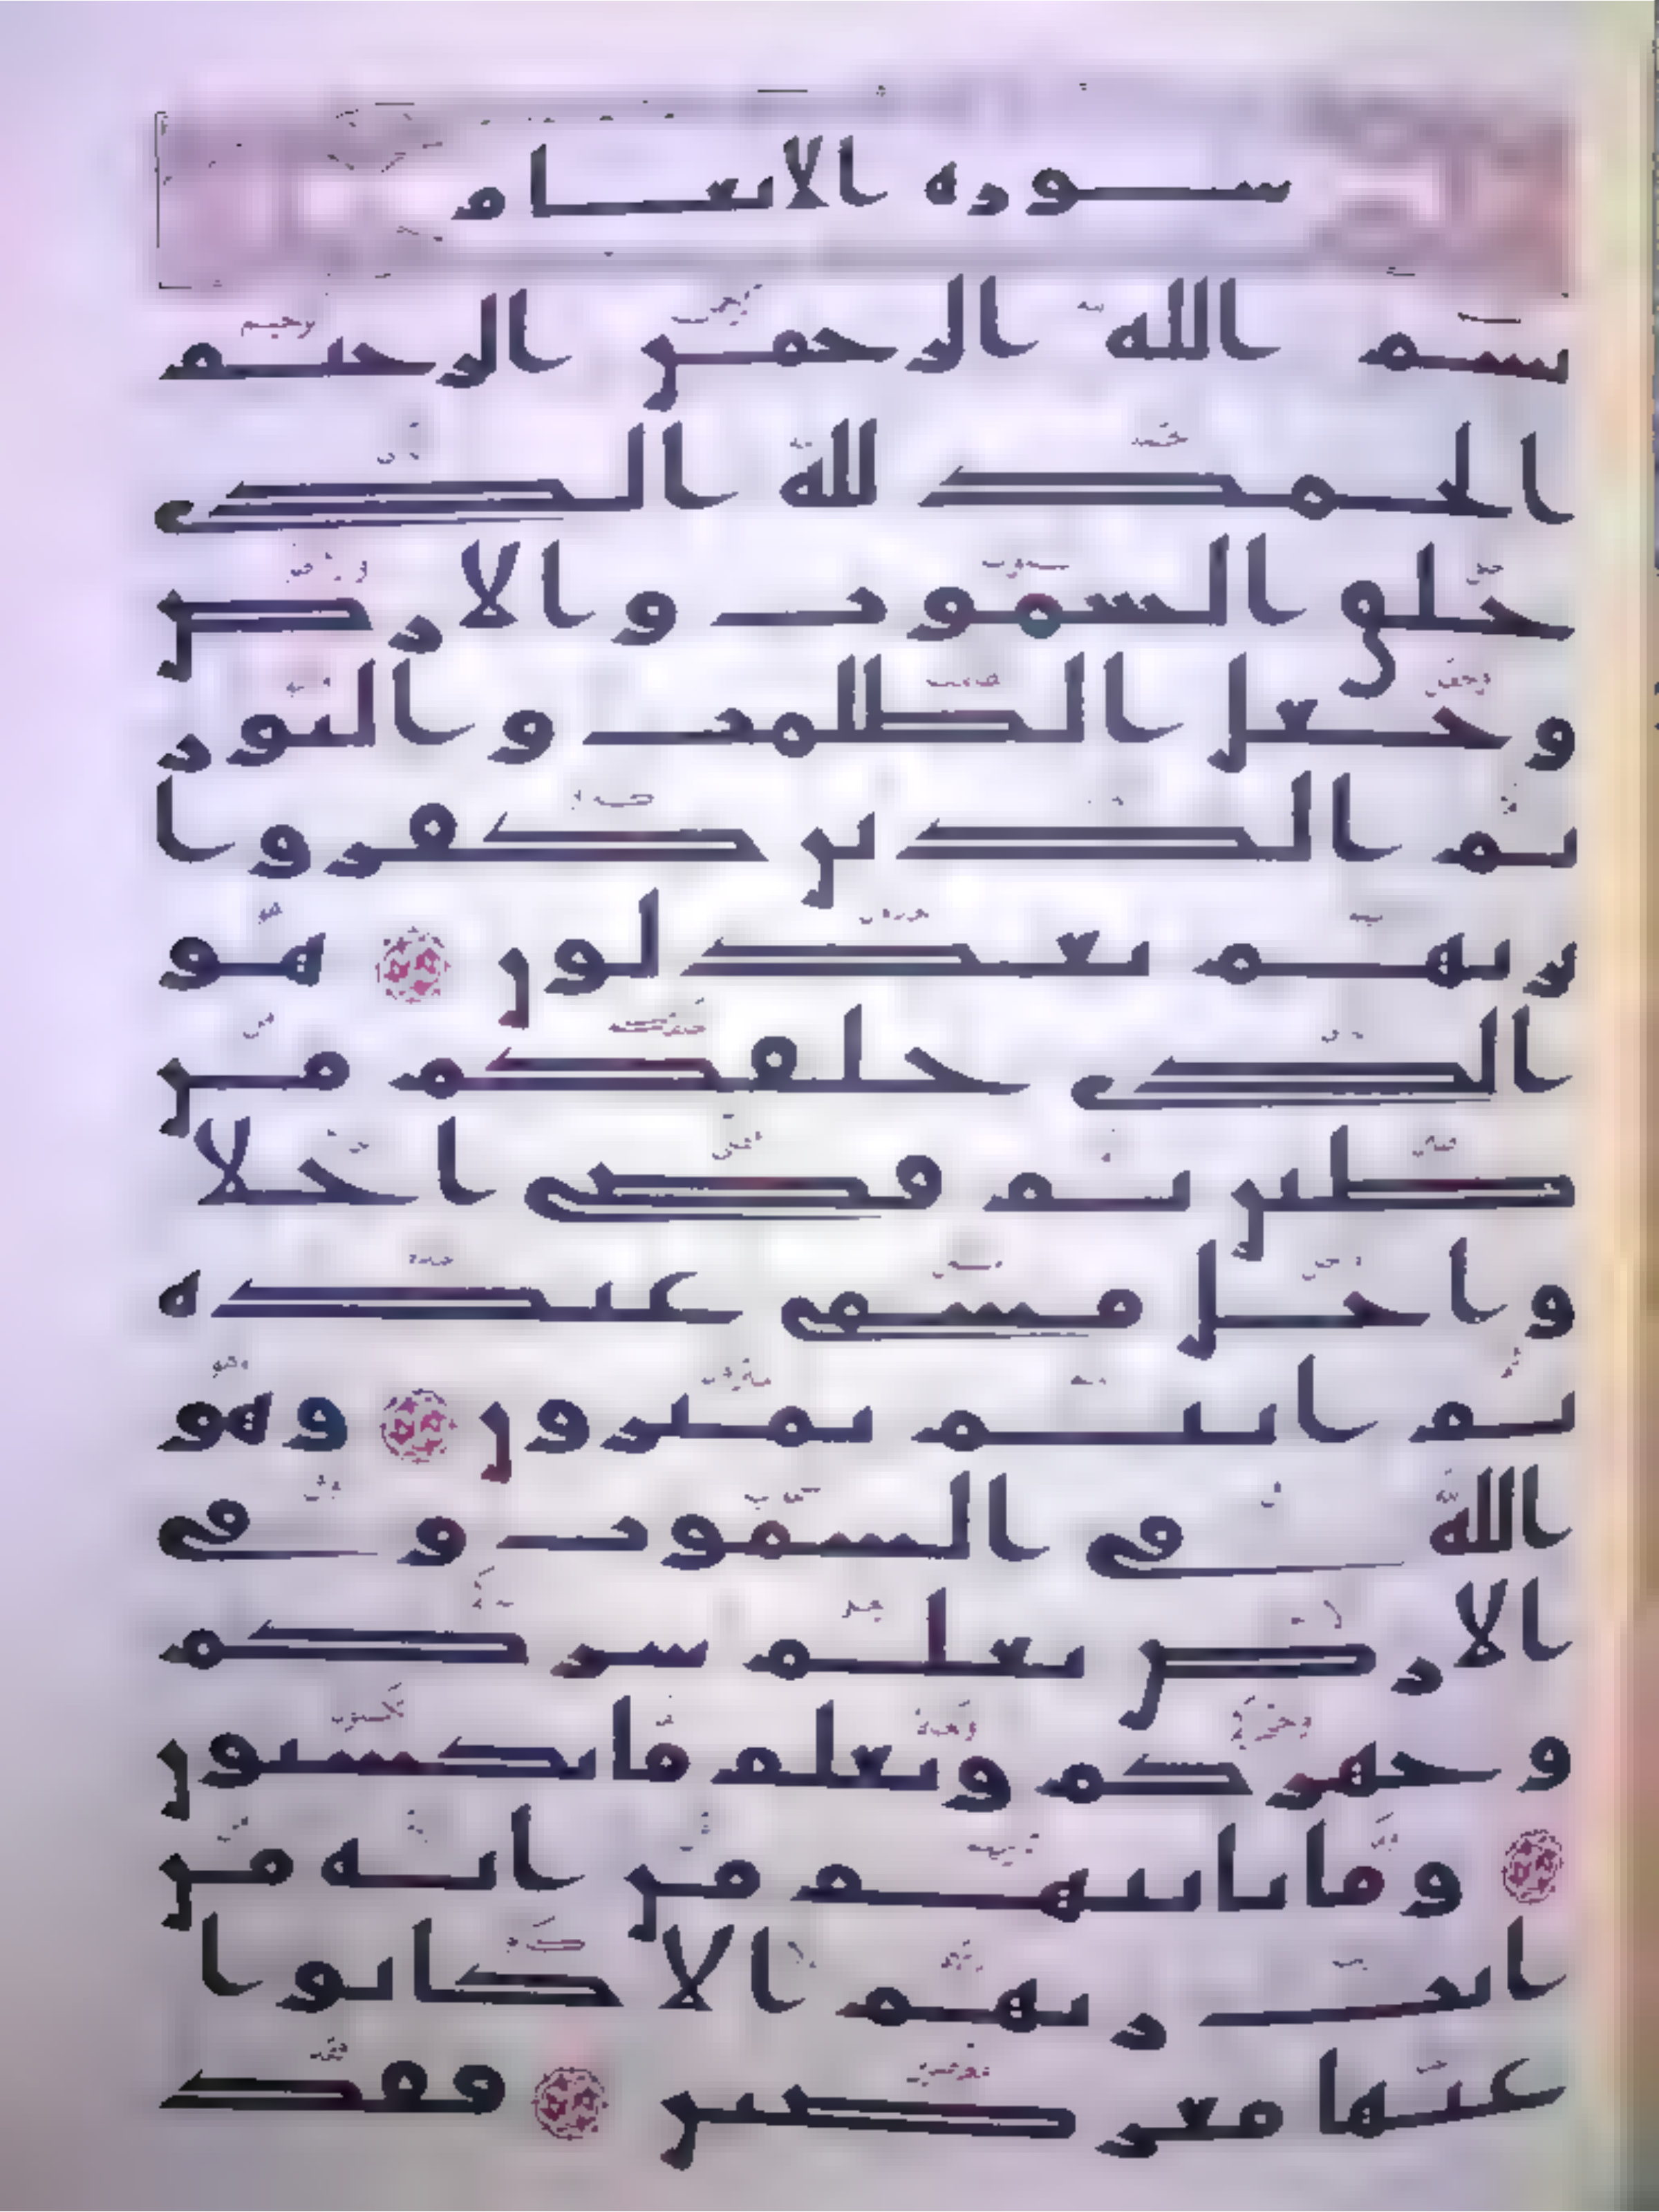 سورة الانعام
بسم الله الرحمن الرحيم
الحمد لله الذي
خلق السموت والارض
وجعل الظلمت والنور
ثم الذين كفروا
بربهم يعدلون هو
الذي خلقكم من
طين ثم قضى اجلا
واجل مسمى عنده
ثم انتم تمترون وهو
الله في السموت وفي
الارض يعلم سركم
وجهركم ويعلم ما تكسبون
وما تاتيهم من اية من
ايت ربهم الا كانوا
عنها معرضين فقد